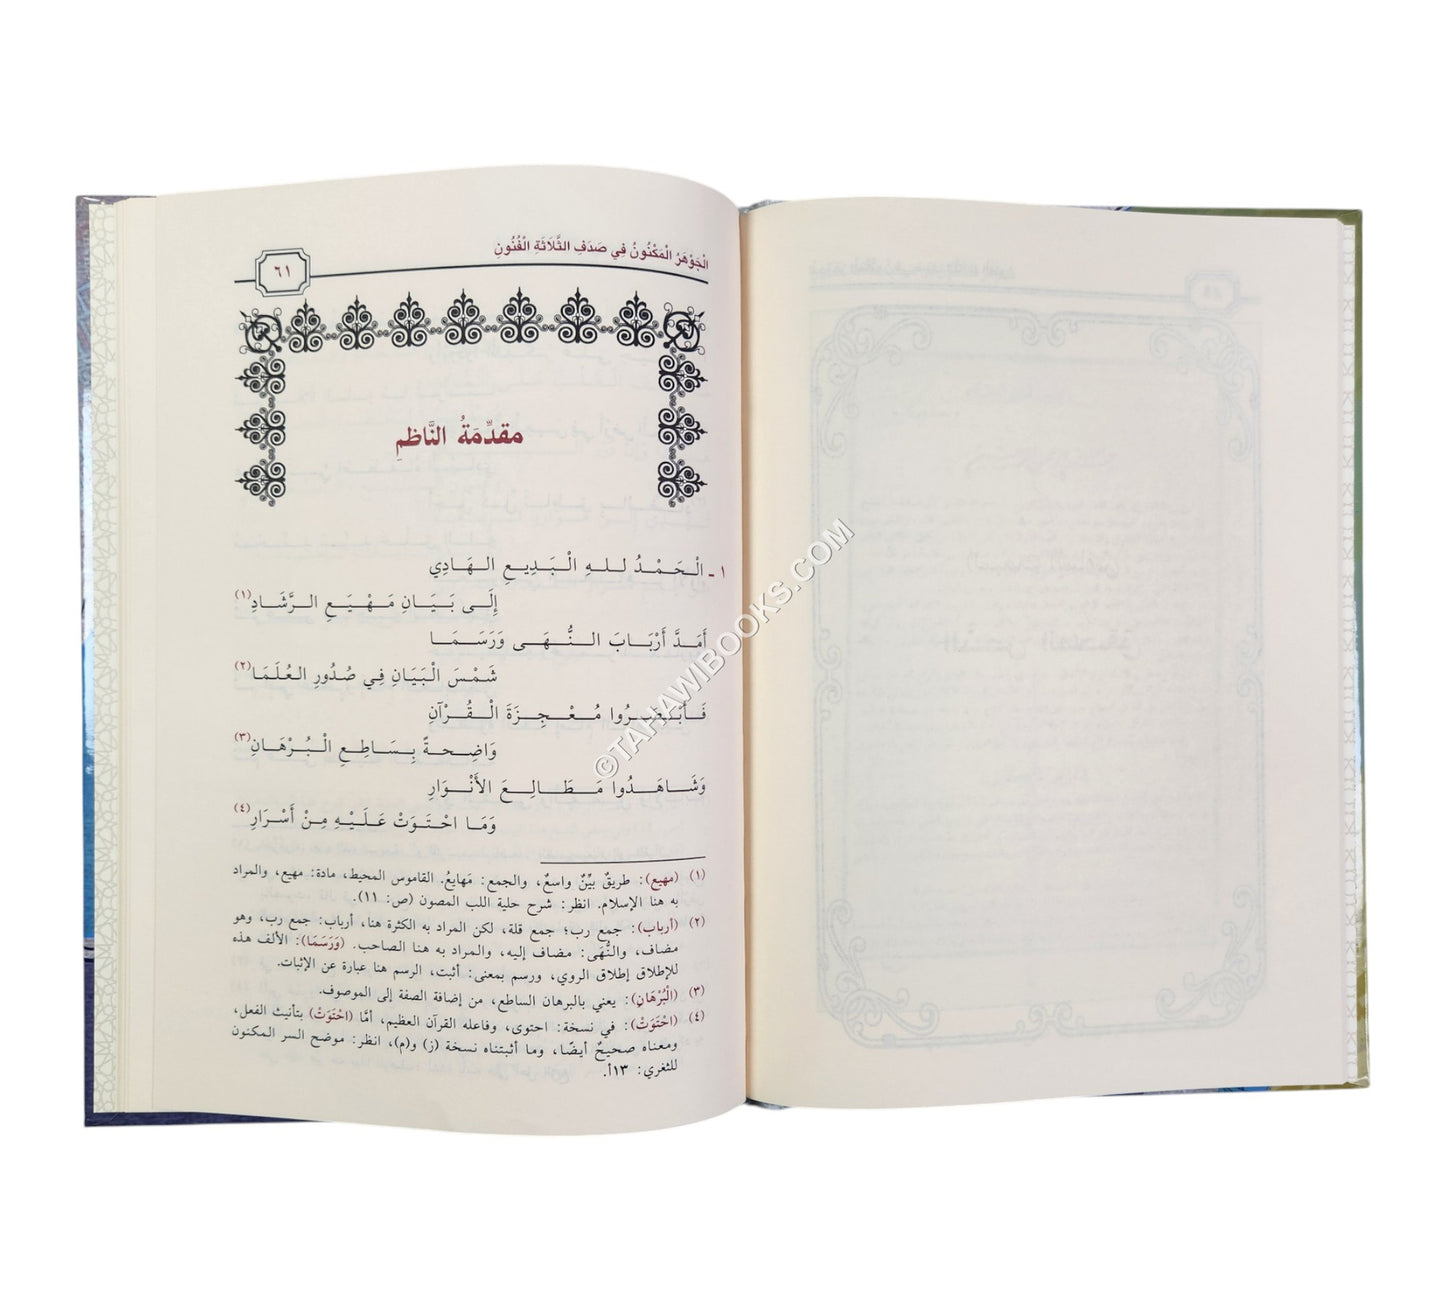 الْجَوْهَرُ الْمَكْنُونُ فِي صَدَفِ الثَّلَاثَةِ الْفُنُونِ
٦١
مقدِّمَةُ النَّاظمِ
١ - الْـحَـمْـدُ لـلـهِ الْـبَـدِيـعِ الـهَـادِي
إِلَـى بَـيَـانِ مَـهْـيَـعِ الـرَّشَـادِ(١)
أَمَـدَّ أَرْبَـابَ الـنُّـهَـى وَرَسَـمَـا
شَمْسَ الْبَيَانِ فِي صُدُورِ العُلَمَا(٢)
فَـأَبْـصَـرُوا مُـعْـجِـزَةَ الْـقُـرْآنِ
وَاضِـحـةً بِـسَـاطِـعِ الْـبُـرْهَـانِ(٣)
وَشَـاهَـدُوا مَـطَـالِـعَ الأَنْـوَارِ
وَمَـا احْـتَـوَتْ عَـلَـيْـهِ مِـنْ أَسْـرَارِ(٤)
(١) (مهيع): طريقٌ بيِّنٌ واسعٌ، والجمع: مَهايعُ. القاموس المحيط، مادة: مهيع، والمراد
به هنا الإسلام. انظر: شرح حلية اللب المصون (ص: ١١).
(٢) (أرباب): جمع رب؛ جمع قلة، لكن المراد به الكثرة هنا، أرباب: جمع رب، وهو
مضاف، والنُّهَى: مضاف إليه، والمراد به هنا الصاحب. (وَرَسَمَا): الألف هذه
للإطلاق إطلاق الروي، ورسم بمعنى: أثبت، الرسم هنا عبارة عن الإثبات.
(٣) (الْبُرْهَانِ): يعني بالبرهان الساطع، من إضافة الصفة إلى الموصوف.
(٤) (احْتَوَتْ): في نسخة: احتوى، وفاعله القرآن العظيم، أمَّا (احْتَوَتْ) بتأنيث الفعل،
ومعناه صحيحٌ أيضًا، وما أثبتناه نسخة (ز) و(م)، انظر: موضح السر المكنون
للثغري: ١٣أ.
©TAHAWIBOOKS.COM